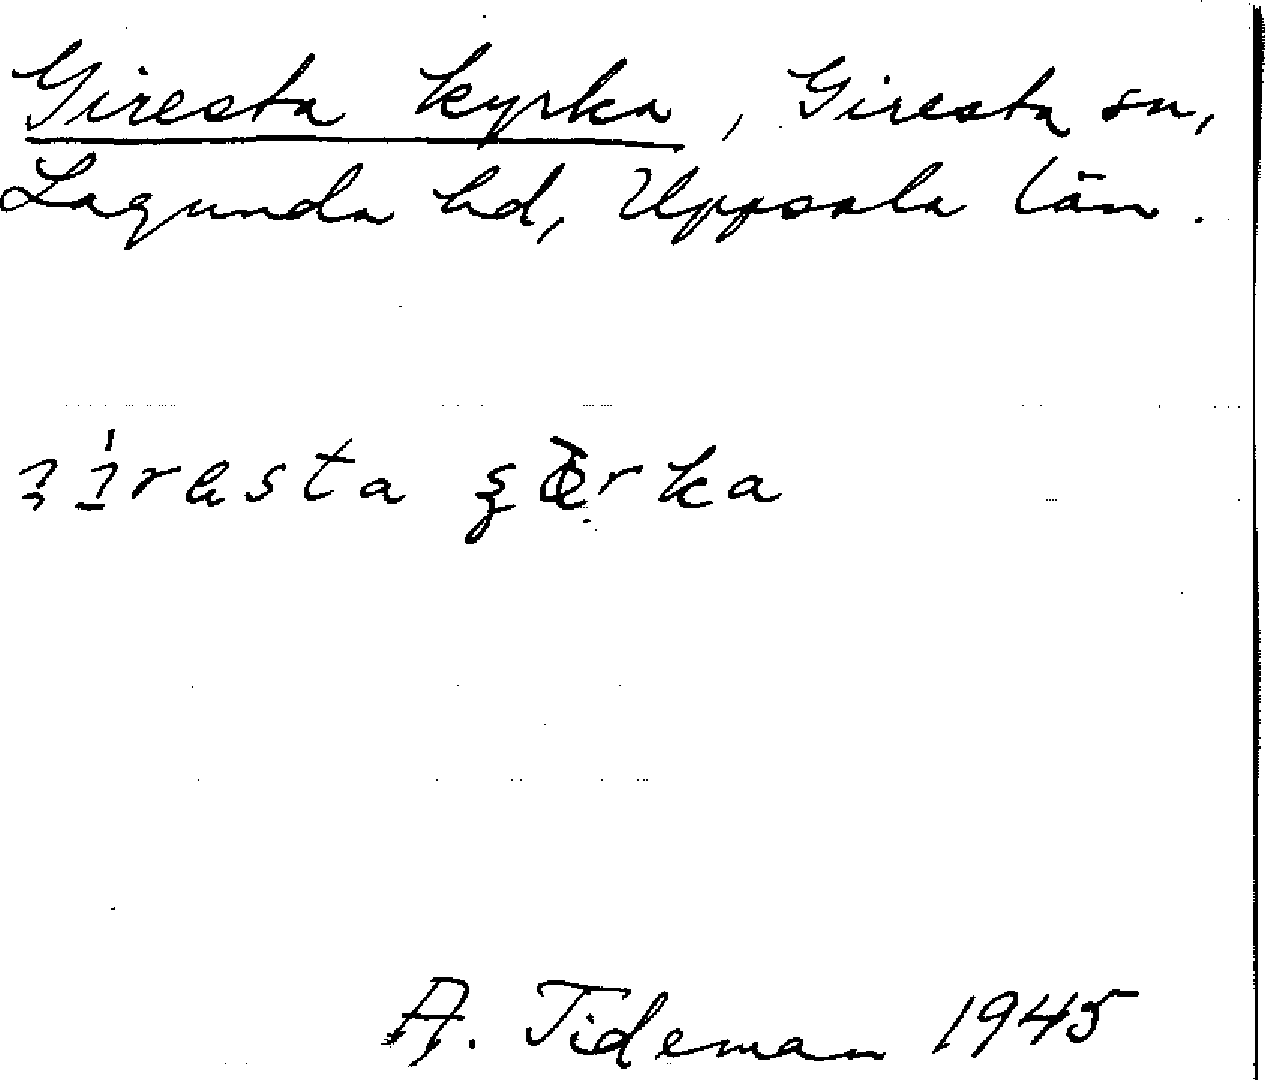 Giresta kyrka, Giresta sn,
Lagunda hd, Uppsala län.
A. Tideman 1945